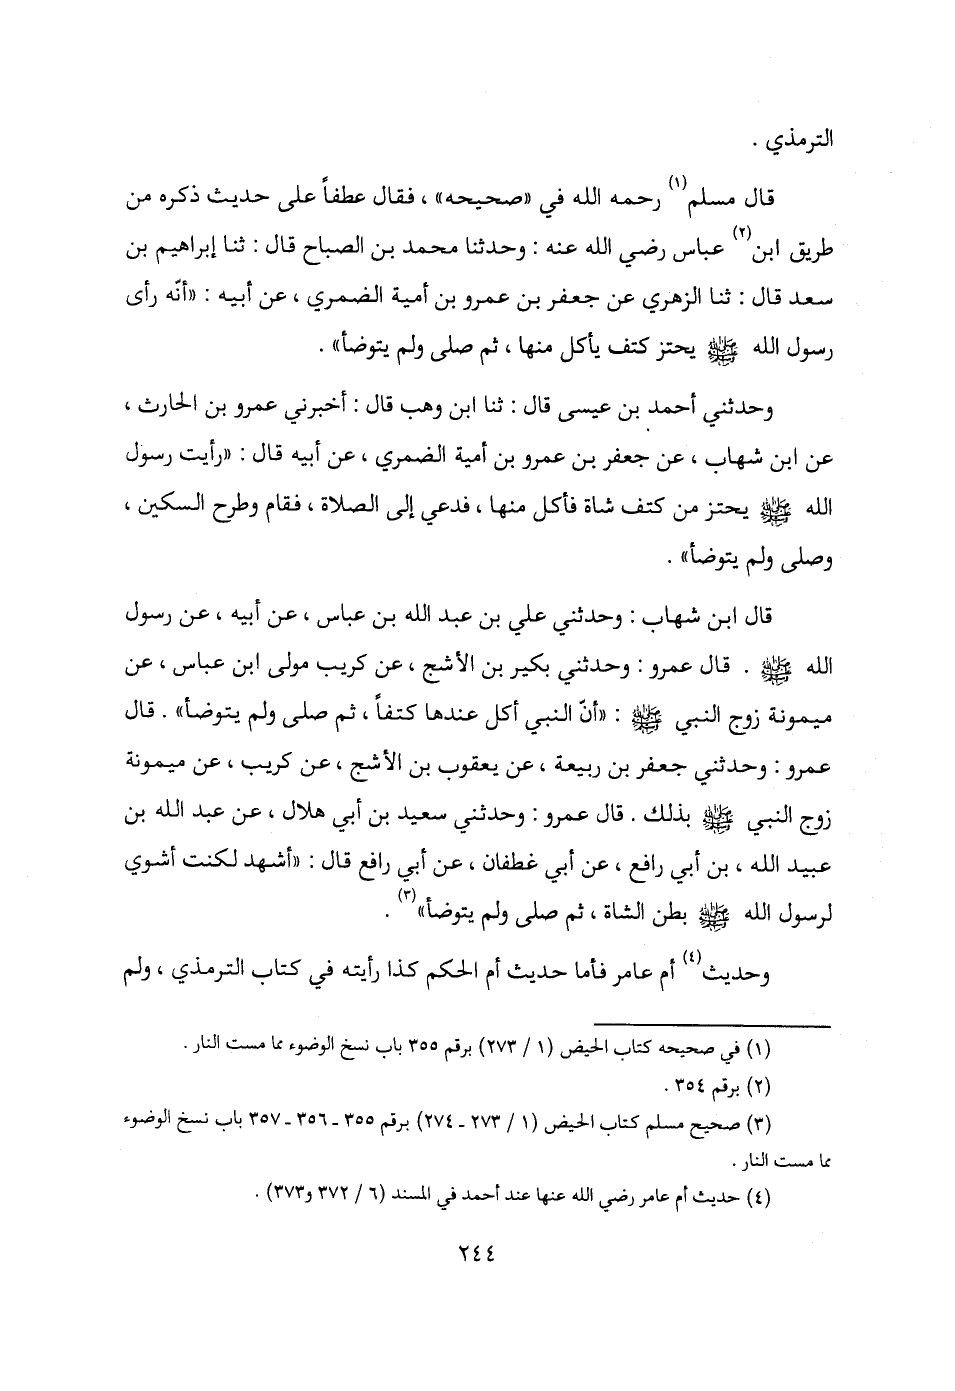 الترمذي .
قال مسلم(١) رحمه الله في «صحيحه» ، فقال عطفاً على حديث ذكره من
طريق ابن(٢) عباس رضي الله عنه : وحدثنا محمد بن الصباح قال : ثنا إبراهيم بن
سعد قال : ثنا الزهري عن جعفر بن عمرو بن أمية الضمري ، عن أبيه : «أنّه رأى
رسول الله ﷺ يحتز كتف يأكل منها ، ثم صلى ولم يتوضأ» .
وحدثني أحمد بن عيسى قال : ثنا ابن وهب قال : أخبرني عمرو بن الحارث ،
عن ابن شهاب ، عن جعفر بن عمرو بن أمية الضمري ، عن أبيه قال : «رأيت رسول
الله ﷺ يحتز من كتف شاة فأكل منها ، فدعي إلى الصلاة ، فقام وطرح السكين ،
وصلى ولم يتوضأ» .
قال ابن شهاب : وحدثني علي بن عبد الله بن عباس ، عن أبيه ، عن رسول
الله ﷺ . قال عمرو : وحدثني بكير بن الأشج ، عن كريب مولى ابن عباس ، عن
ميمونة زوج النبي ﷺ : «أنّ النبي أكل عندها كتفاً ، ثم صلى ولم يتوضأ» . قال
عمرو : وحدثني جعفر بن ربيعة ، عن يعقوب بن الأشج ، عن كريب ، عن ميمونة
زوج النبي ﷺ بذلك . قال عمرو : وحدثني سعيد بن أبي هلال ، عن عبد الله بن
عبيد الله ، بن أبي رافع ، عن أبي غطفان ، عن أبي رافع قال : «أشهد لكنت أشوي
لرسول الله ﷺ بطن الشاة ، ثم صلى ولم يتوضأ»(٣) .
وحديث(٤) أم عامر فأما حديث أم الحكم كذا رأيته في كتاب الترمذي ، ولم
(١) في صحيحه كتاب الحيض (١ / ٢٧٣) برقم ٣٥٥ باب نسخ الوضوء مما مست النار .
(٢) برقم ٣٥٤ .
(٣) صحيح مسلم كتاب الحيض (١ / ٢٧٣ ـ ٢٧٤) برقم ٣٥٥ ـ ٣٥٦ ـ ٣٥٧ باب نسخ الوضوء
مما مست النار .
(٤) حديث أم عامر رضي الله عنها عند أحمد في المسند (٦ / ٣٧٢ و٣٧٣) .
٢٤٤